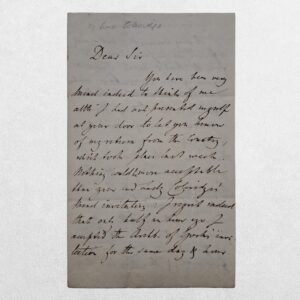 Dear Sir
You have been very
kind indeed to think of me
altho' I had not presented myself
at your door to let you know
of my return from the Country,
which took place last week.
Nothing could more acceptable
than your and
kind invitation. I regret indeed
that only half an hour ago I
accepted the of invi
tation for the same day & hour